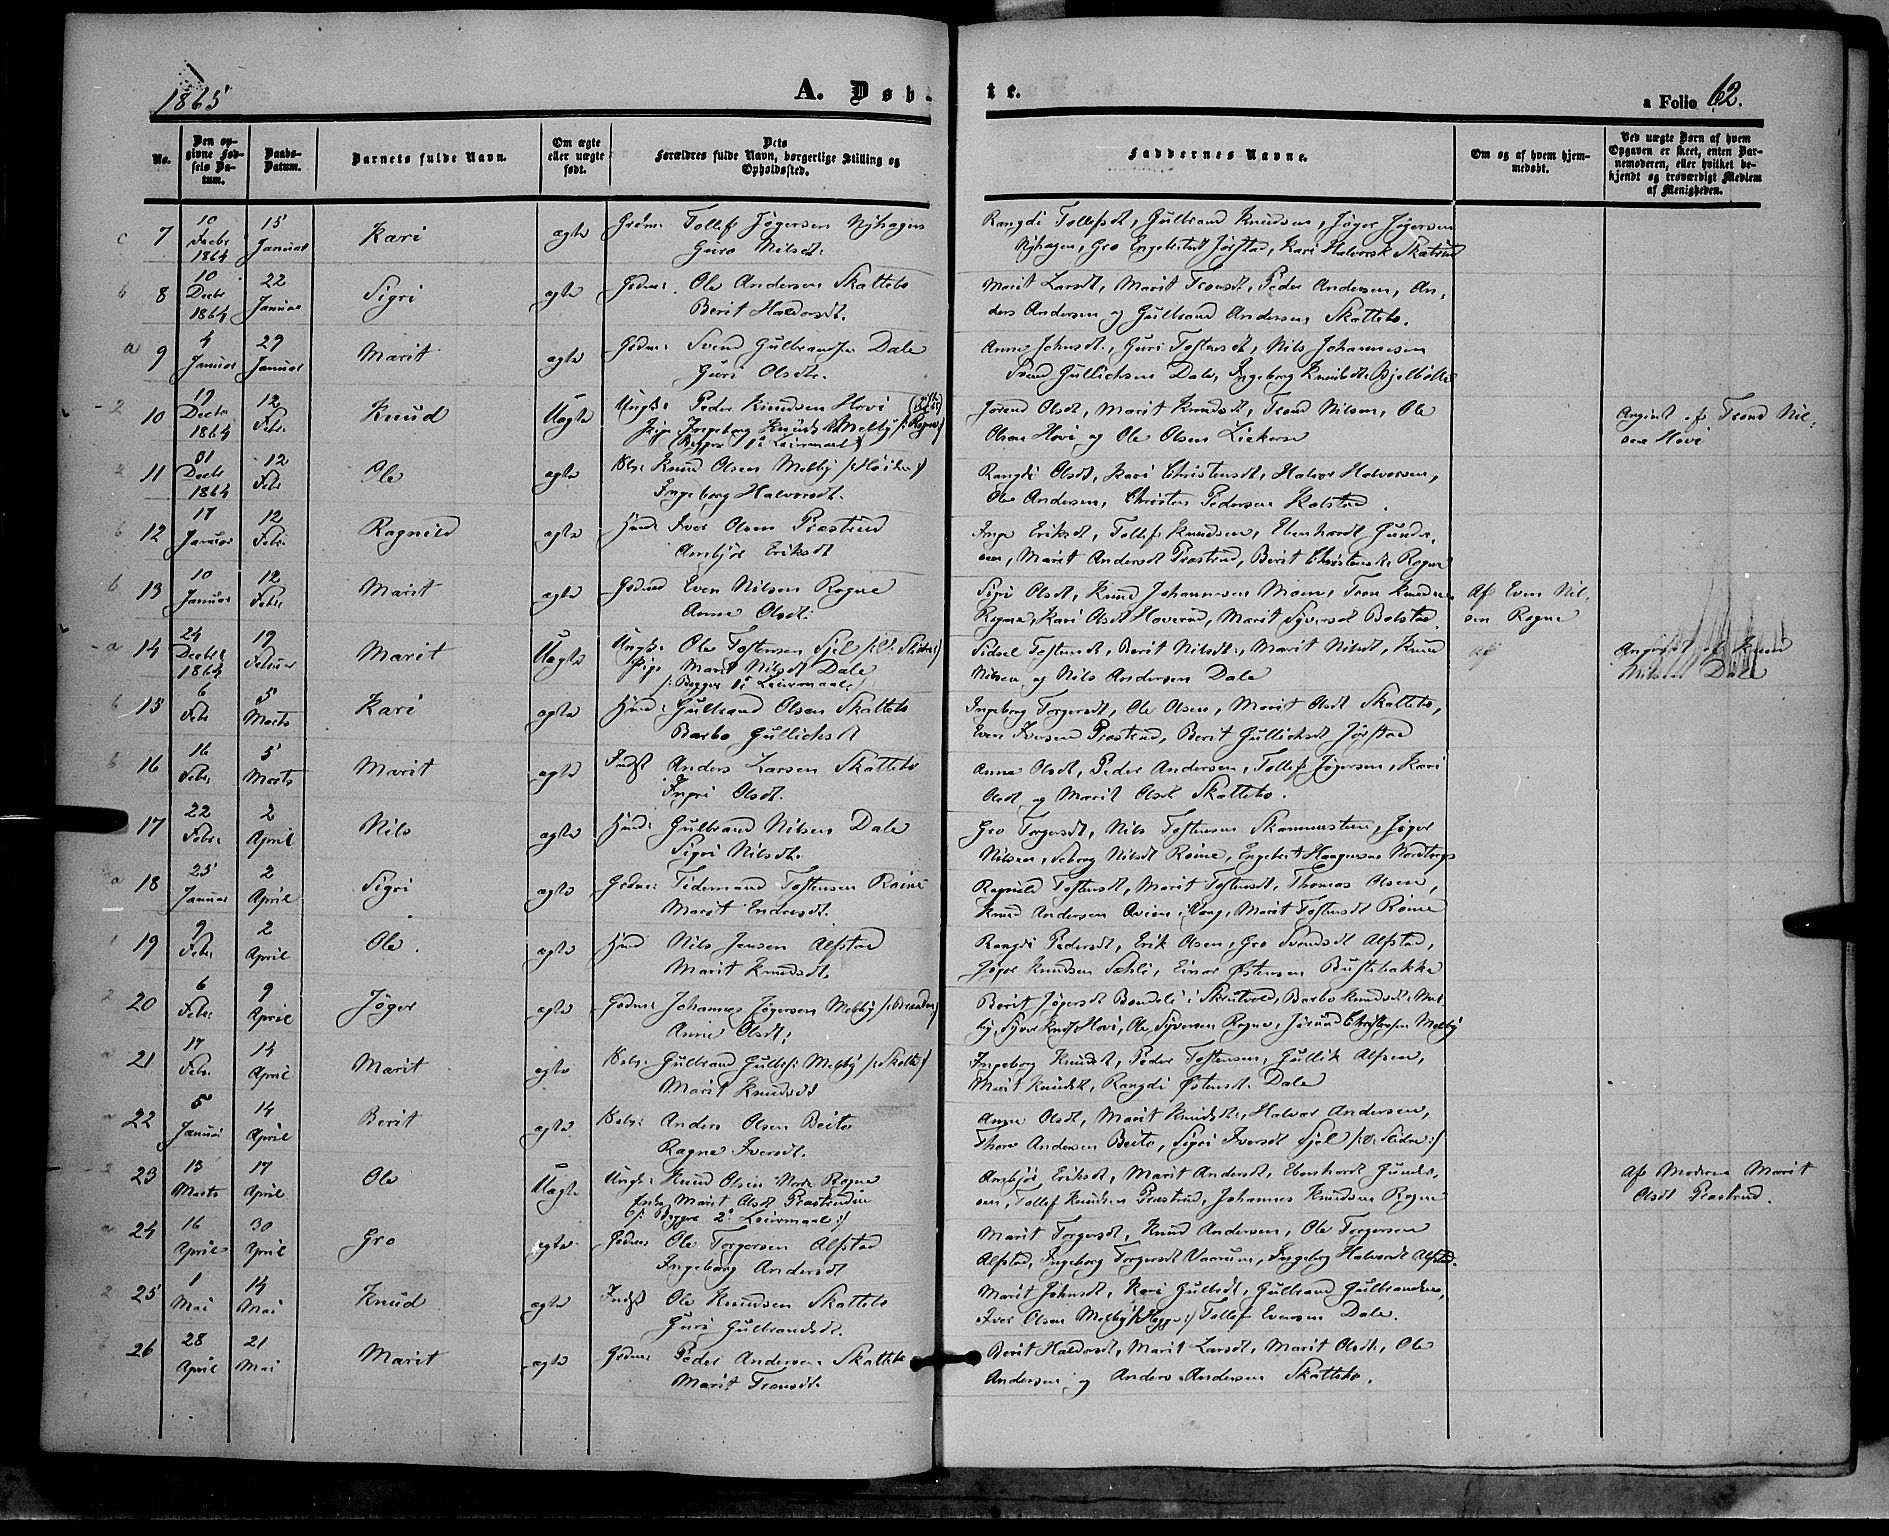 1865
A. Døbte.
a Folio 62.
No.
Den opgivne Fødsels Datum.
Daabs-Datum.
Barnets fulde Navn.
Om ægte eller uægte født.
Dets Forældres fulde Navn, borgerlige Stilling og Opholdssted.
Faddernes Navne.
Om og af hvem hjemmedøbt.
Ved uægte Børn af hvem Opgaven er skeet, enten Barnemoderen, eller hvilket bekjendt og troværdigt Medlem af Menigheden.
7 10 1864 15 Januar Kari ægte Tollef Jøgersen Nyhagen
Guro Nilsdt:
Rangdi Tollefsdt, Gulbrand Knudsen, Jøger Jøgersen
Nyhagen, Gro Engebretsdt Jørstad, Kari Halvorsdt
8 10 Decbr 1864 22 Januar Sigri ægte Gdmd: Ole Andersen Skattebo
Berit Haldorsdt.
Marit Larsdt, Marit Tronsdt, Peder Andersen, An-
ders Andersen og Gulbrand Andersen Skattebo.
9 4 Januar 29 Januar Marit ægte Gdmd: Svend Gulbrands: Dale
Guri Olsdtr.
Anne Johnsdt:, Guri Tostensdt, Nils Johannesen
Svend Gullichsen Dale, Ingeborg Knudsdt
10 19 Decbr 1864 12 Febr. Knud Uægte Ungk: Peder Knudsen Hovi
Pige Ingeborg Knudsdt Melby
Begges 1ste Leiermaal
Jørend Olsdt, Marit Knudsdt, Trond Nilsen, Ole
Olsen Hovi og Ole Olsen
Angivet af Trond Nil-
sen Hovi
11 31 Decbr 1864 12 Febr Ole ægte Knud Olsen Melby
Ingeborg Halvorsdt.
Rangdi Olsdt, Kari Christensdt, Halvor Halvorsen,
Ole Andersen, Christen Pedersen Rolstad.
12 17 Januar 12 Febr. Ragnild ægte Hmd: Iver Olsen Præstrud
Ambjør Eriksdt
Inge Eriksdt, Tollef Knudsen, Ebenhardt Gunder-
sen, Marit Andersdt Præstrud, Berit Christensdt Rogne
13 10 Januar 12 Febr Marit ægte Gdmd Even Nilsen Rogne
Anne Olsdt.
Sigri Olsdt, Knud Johannesen Moen, Tron Knudsen
Rogne, Kari Olsdt Haverud, Marit Syversdt Bolstad
Af Even Nil-
sen Rogne
14 24 Decbr 1864 19 Februar Marit Uægte Ungk: Ole Tostensen Fjel
Pige Marit Nilsdt Dale
/: Begges 1ste Leiermaal:/
Sidsel Tostensdt, Berit Nilsdt:, Marit Nilsdt, Knud
Nilsen og Nils Andersen Dale
Af
Angivet af Knud
Nilsen Dale
15 6 Febr 5 Marts Kari ægte Hmd: Gulbrand Olsen Skattebo
Barbo Gullichsdt
Ingeborg Torgersdt, Ole Olsen, Marit Olsdt Skattebo,
Even Iversen Præstrud, Berit Gullichsdt Jørstad
16 16 Febr. 5 Marts Marit ægte Indst Anders Larsen Skattebo
Ingri Olsdt.
Anne Olsdt, Peder Andersen, Tollef Jøgersen, Kari
Olsdt og Marit Olsdt Skattebo.
17 22 Febr. 2 April Nils ægte Hmd: Gulbrand Nilsen Dale
Sigri Nilsdt.
Gro Torgersdt, Nils Tostensen Skammesteen, Jøger
Nilsen, Seborg Nilsdt Roine, Engebret Haagensen
18 25 Januar 2 April Sigri ægte Gdmd: Tidemand Tostensen Roine
Marit Endresdt.
Ragnild Tostensdt, Marit Tostensdt, Thomas Olsen,
Knud Andersen i Vang, Marit Tostensdt Roine
19 9 Febr. 2 April Ole. ægte Hmd Nils Jensen Alfstad
Marit Knudsdt.
Rangdi Pedersdt, Erik Olsen, Gro Svendsdt Alfstad,
Jøger Knudsen Sæhli, Einar Østensen Bustebakke
20 6 Febr. 9 April Jøger ægte Gdmd: Johannes Jøgersen Melby
Anne Olsdt;
Berit Jøgersdt Bondeli i Skrutvold, Barbo Knudsdt Mel-
by, Syver Knuds: Hovi, Ole Syversen Rogne, Jørund Christophersen Melby
21 17 Febr. 14 April Marit ægte Gulbrand Gulbs: Melby
Marit Knudsdt
Ingeborg Knudsdt, Peder Tostensen, Gullik Alfsen,
Marit Knudsdt, Rangdi Østensdt Dale
22 5 Januar 14 April Berit ægte Anders Olsen Beito
Ragne Iversdt.
Anne Olsdt, Marit Knudsdt:, Halvor Andersen,
Thore Andersen Beito, Sigri Iversdt Fjel
23 13 Marts 17 April Ole Uægte Ungk: Knud Olsen Rogne
Enke Marit Olsdt Præstrud
/: Begges 2det Leiermaal:/
Ambjør Eriksdt, Marit Andersdt, Ebenhardt Gunder-
sen, Tollef Knudsen Præstrud, Johannes Knudsen Rogne
Af Moderen Marit
Olsdt Præstrud.
24 16 April 30 April Gro ægte Gdmd: Ole Torgersen Alfstad
Ingeborg Andersdt
Marit Torgersdt, Knud Andersen, Ole Torgersen
Alfstad, Ingeborg Torgersdt, Ingeborg Halvorsdt Alfstad.
25 1 Mai 14 Mai Knud ægte Indst Ole Knudsen Skattebo
Guri Gulbrandsdt.
Marit Johnsdt, Kari Gulbsdt, Gulbrand Gulbrandsen,
Iver Olsen Melby /: Hegge:/ Tollef Eversen Dale.
26 28 April 21 Mai Marit ægte Gdmd: Peder Andersen Skattebo
Marit Tronsdt.
Berit Haldorsdt, Marit Larsdt, Marit Olsdt, Ole
Andersen og Anders Andersen Skattebo.